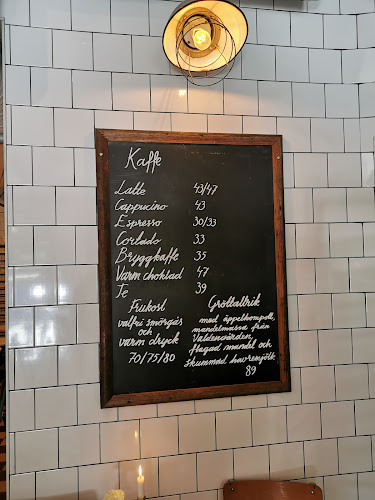 Kaffe
Latte 43/47
Cappucino 43
Espresso 30/33
Cortado 33
Bryggkaffe 35
Varm choklad 47
Te 39
Frukost
valfri smörgås
och
varm dryck
70/75/80
Gröttallrik
med äppelkompott,
mandelmassa från
Valdemarsgården,
flagad mandel och
skummad havremjölk
89